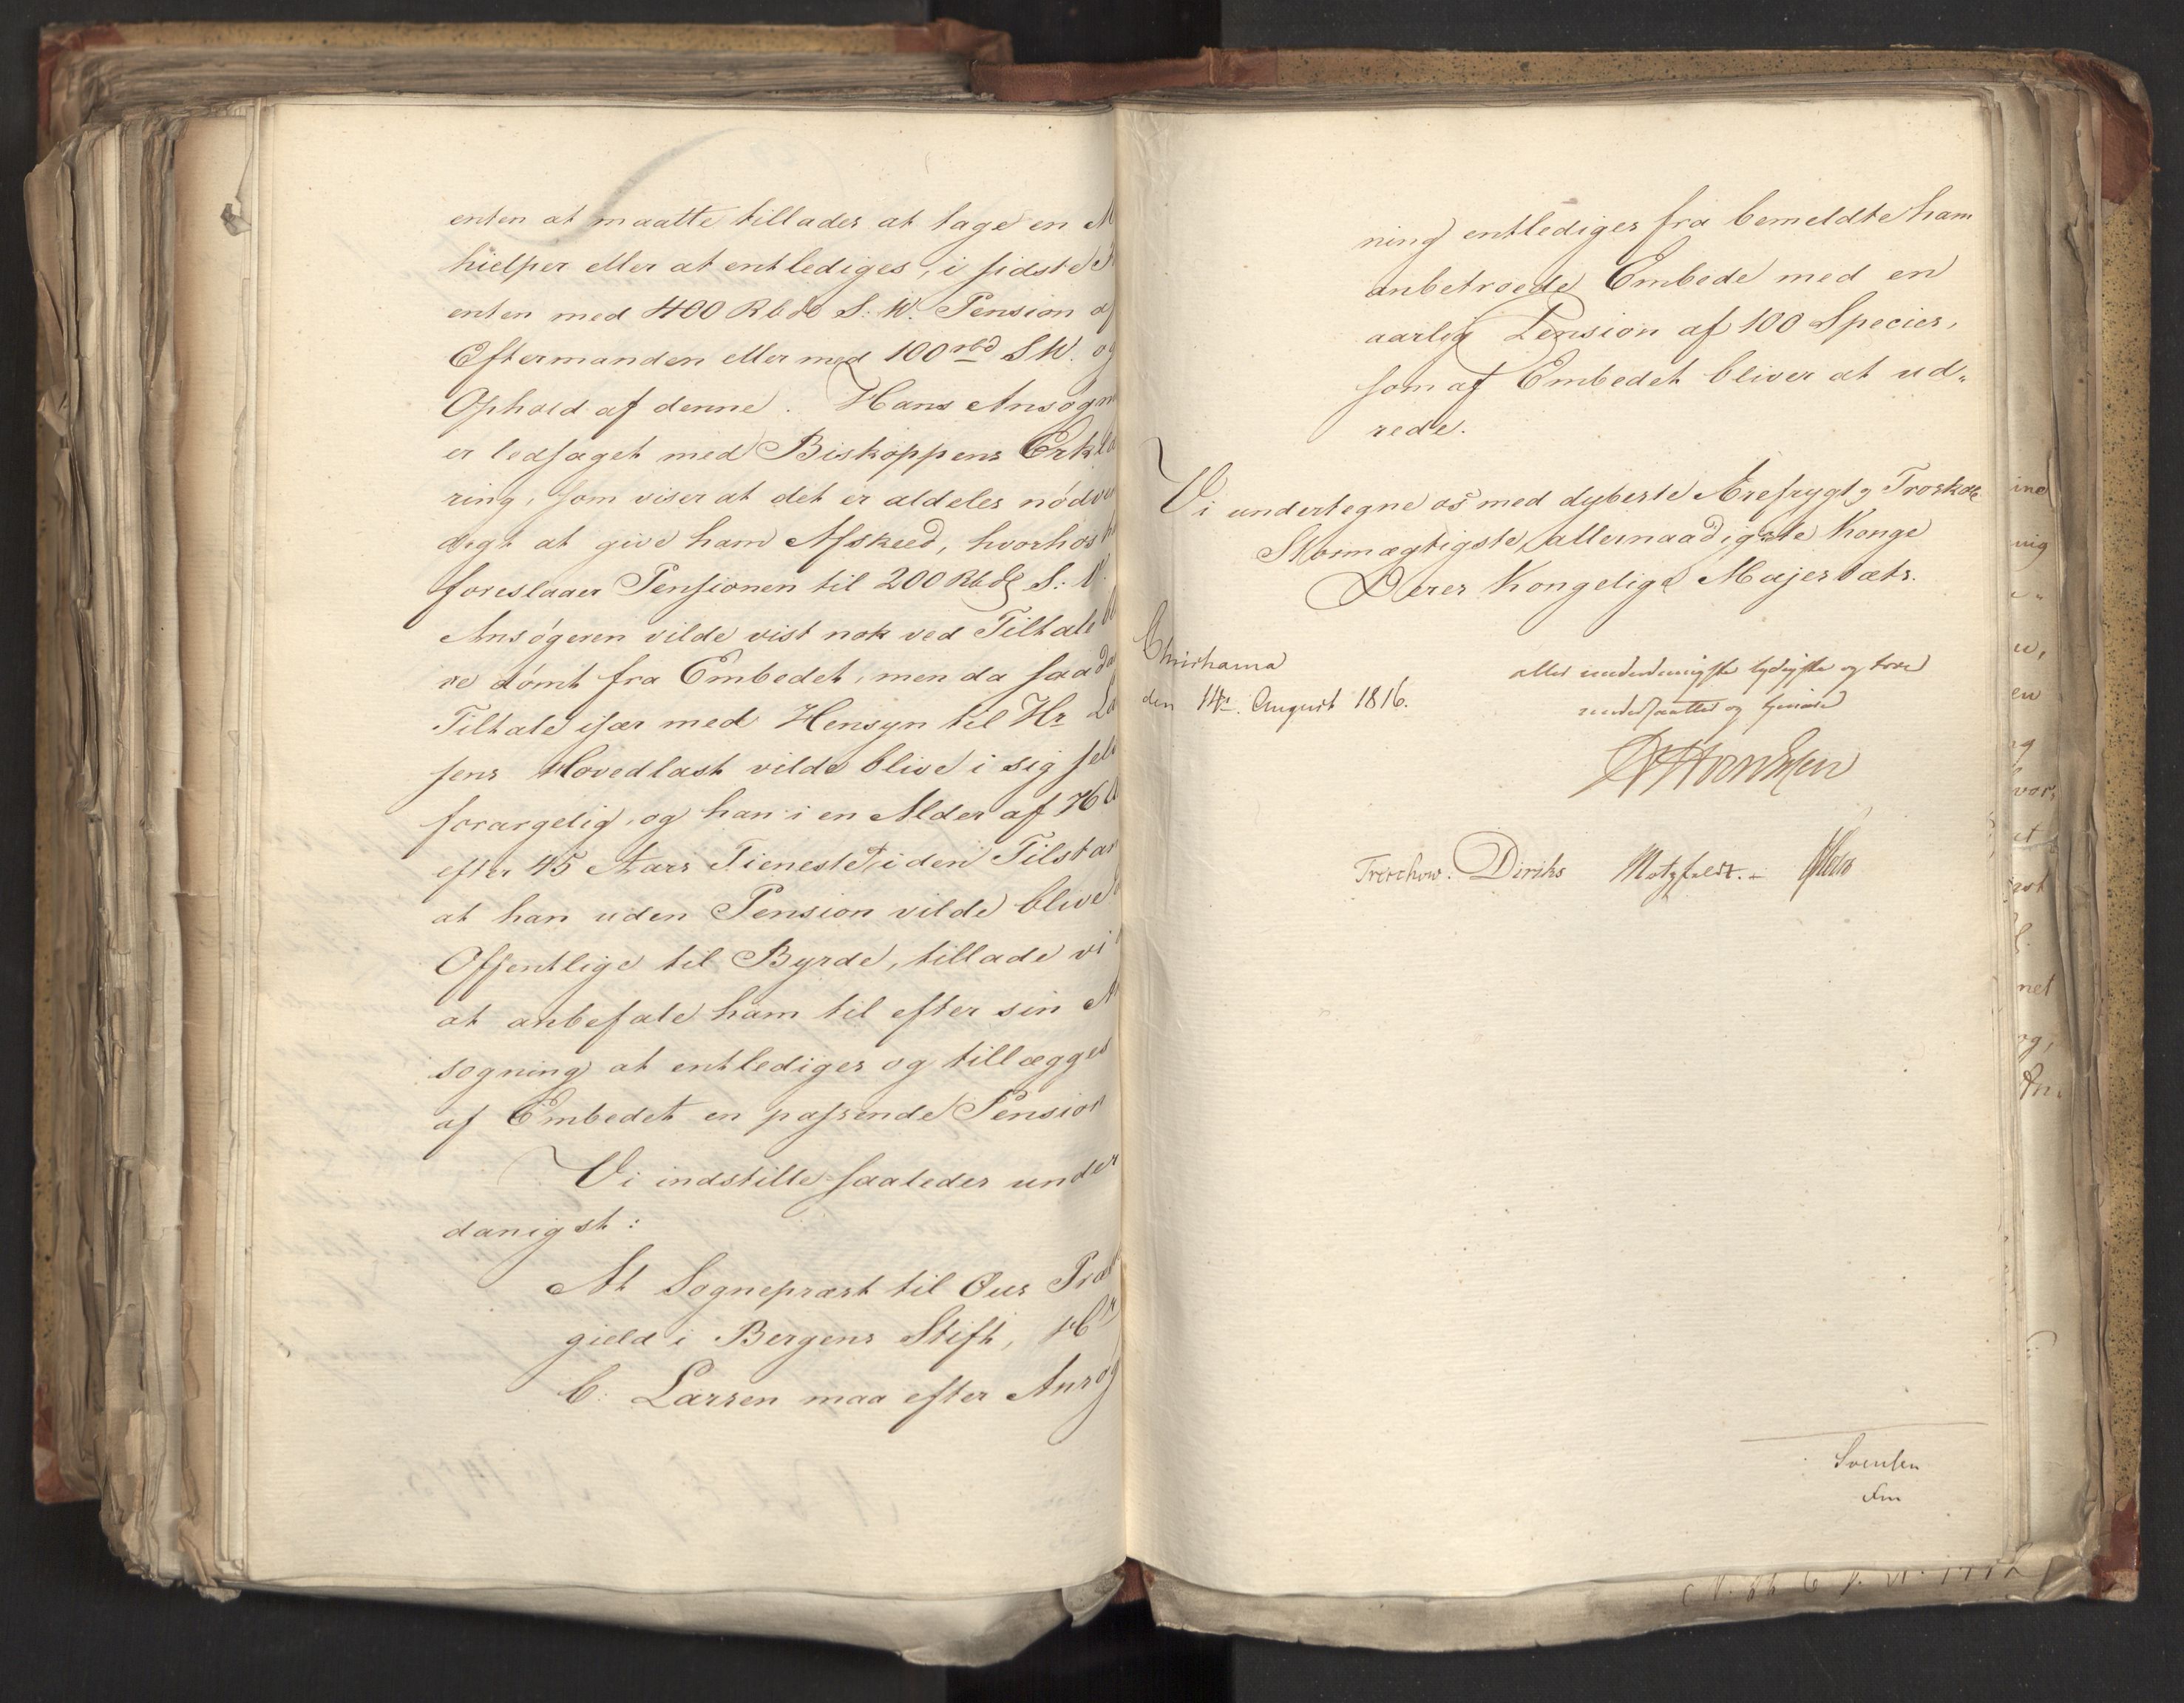 enten at maatte tillades at tage en M
hielper eller at entlediges, i sidste
enten med 400 Rbdr S. W. Pension af
Eftermanden eller med 100 rbd S W. og
Ophold af denne. Hans Ansøgn
er ledsaget med Biskoppens Erklæ
ring, som viser at det er aldeles nødven
digt at give ham Afskeed, hvorhos
foreslaaer Pensionen til 200 Rbd S: V.
Ansøgeren vilde vist nok ved Tiltale bli
ve dømt fra Embedet, men da saada
Tiltale især med Hensyn til Hr La
sens Hovedlast vilde blive i sig selv
forargelig, og han i en Alder af 76 A
efter 45 Aars Tieneste i den Tilstan
at han uden Pension vilde blive
Offentlige til Byrde, tillade vi
at anbefale ham til efter sin An
søgning at entlediges og tillægges
af Embedet en passende Pension
Vi indstille saaledes under
danigst:
At Sognepræst til Ous Præst
gield i Bergens Stift,
C: Larsen maa efter Ansøg
ning entlediges fra bemeldte ham
anbetroede Embede med en
aarlig Pension af 100 Species,
som af Embedet bliver at ud„
rede.
Vi undertegne os med dybeste Ærefrygt og Troskab
Stormægtigste, allernaadigste Konge
Deres Kongelige Majestæts.
Christiania
den 14de August 1816.
aller underdanigste lydigste og troe
undersaatter og tienere
Treschow. Diriks Motzfeldt.
Svensen
Fm